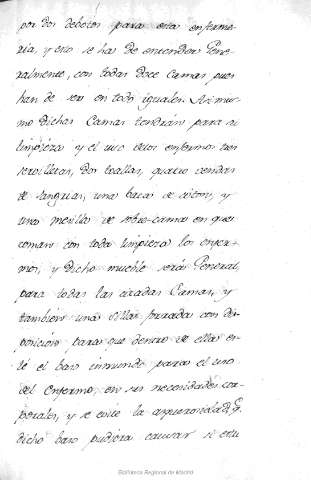 por dos debotos para esta enferme-
ria, y esto se ha de entender Gene-
ralmente, con todas doce Camas pues
han de ser en todo iguales. Asimis-
mo dichas Camas tendrán para su
limpieza y el uso delos enfermos tres
servilletas, dos toallas, quatro vendas
de sangrias, una bacia de y
una mesilla de sobre-camas en que
coman con toda limpieza los enfer-
mos, y dicho mueble será General,
para todas las citadas Camas, y
tambien una silla forrada con dis-
posicion para que dentro de ella es-
té el baso inmundo para el uso
del Enfermo, en sus necesidades cor-
porales, y se evite la asquerosidad q.
dicho baso pudiera causar si estu
Biblioteca Regional de Madrid